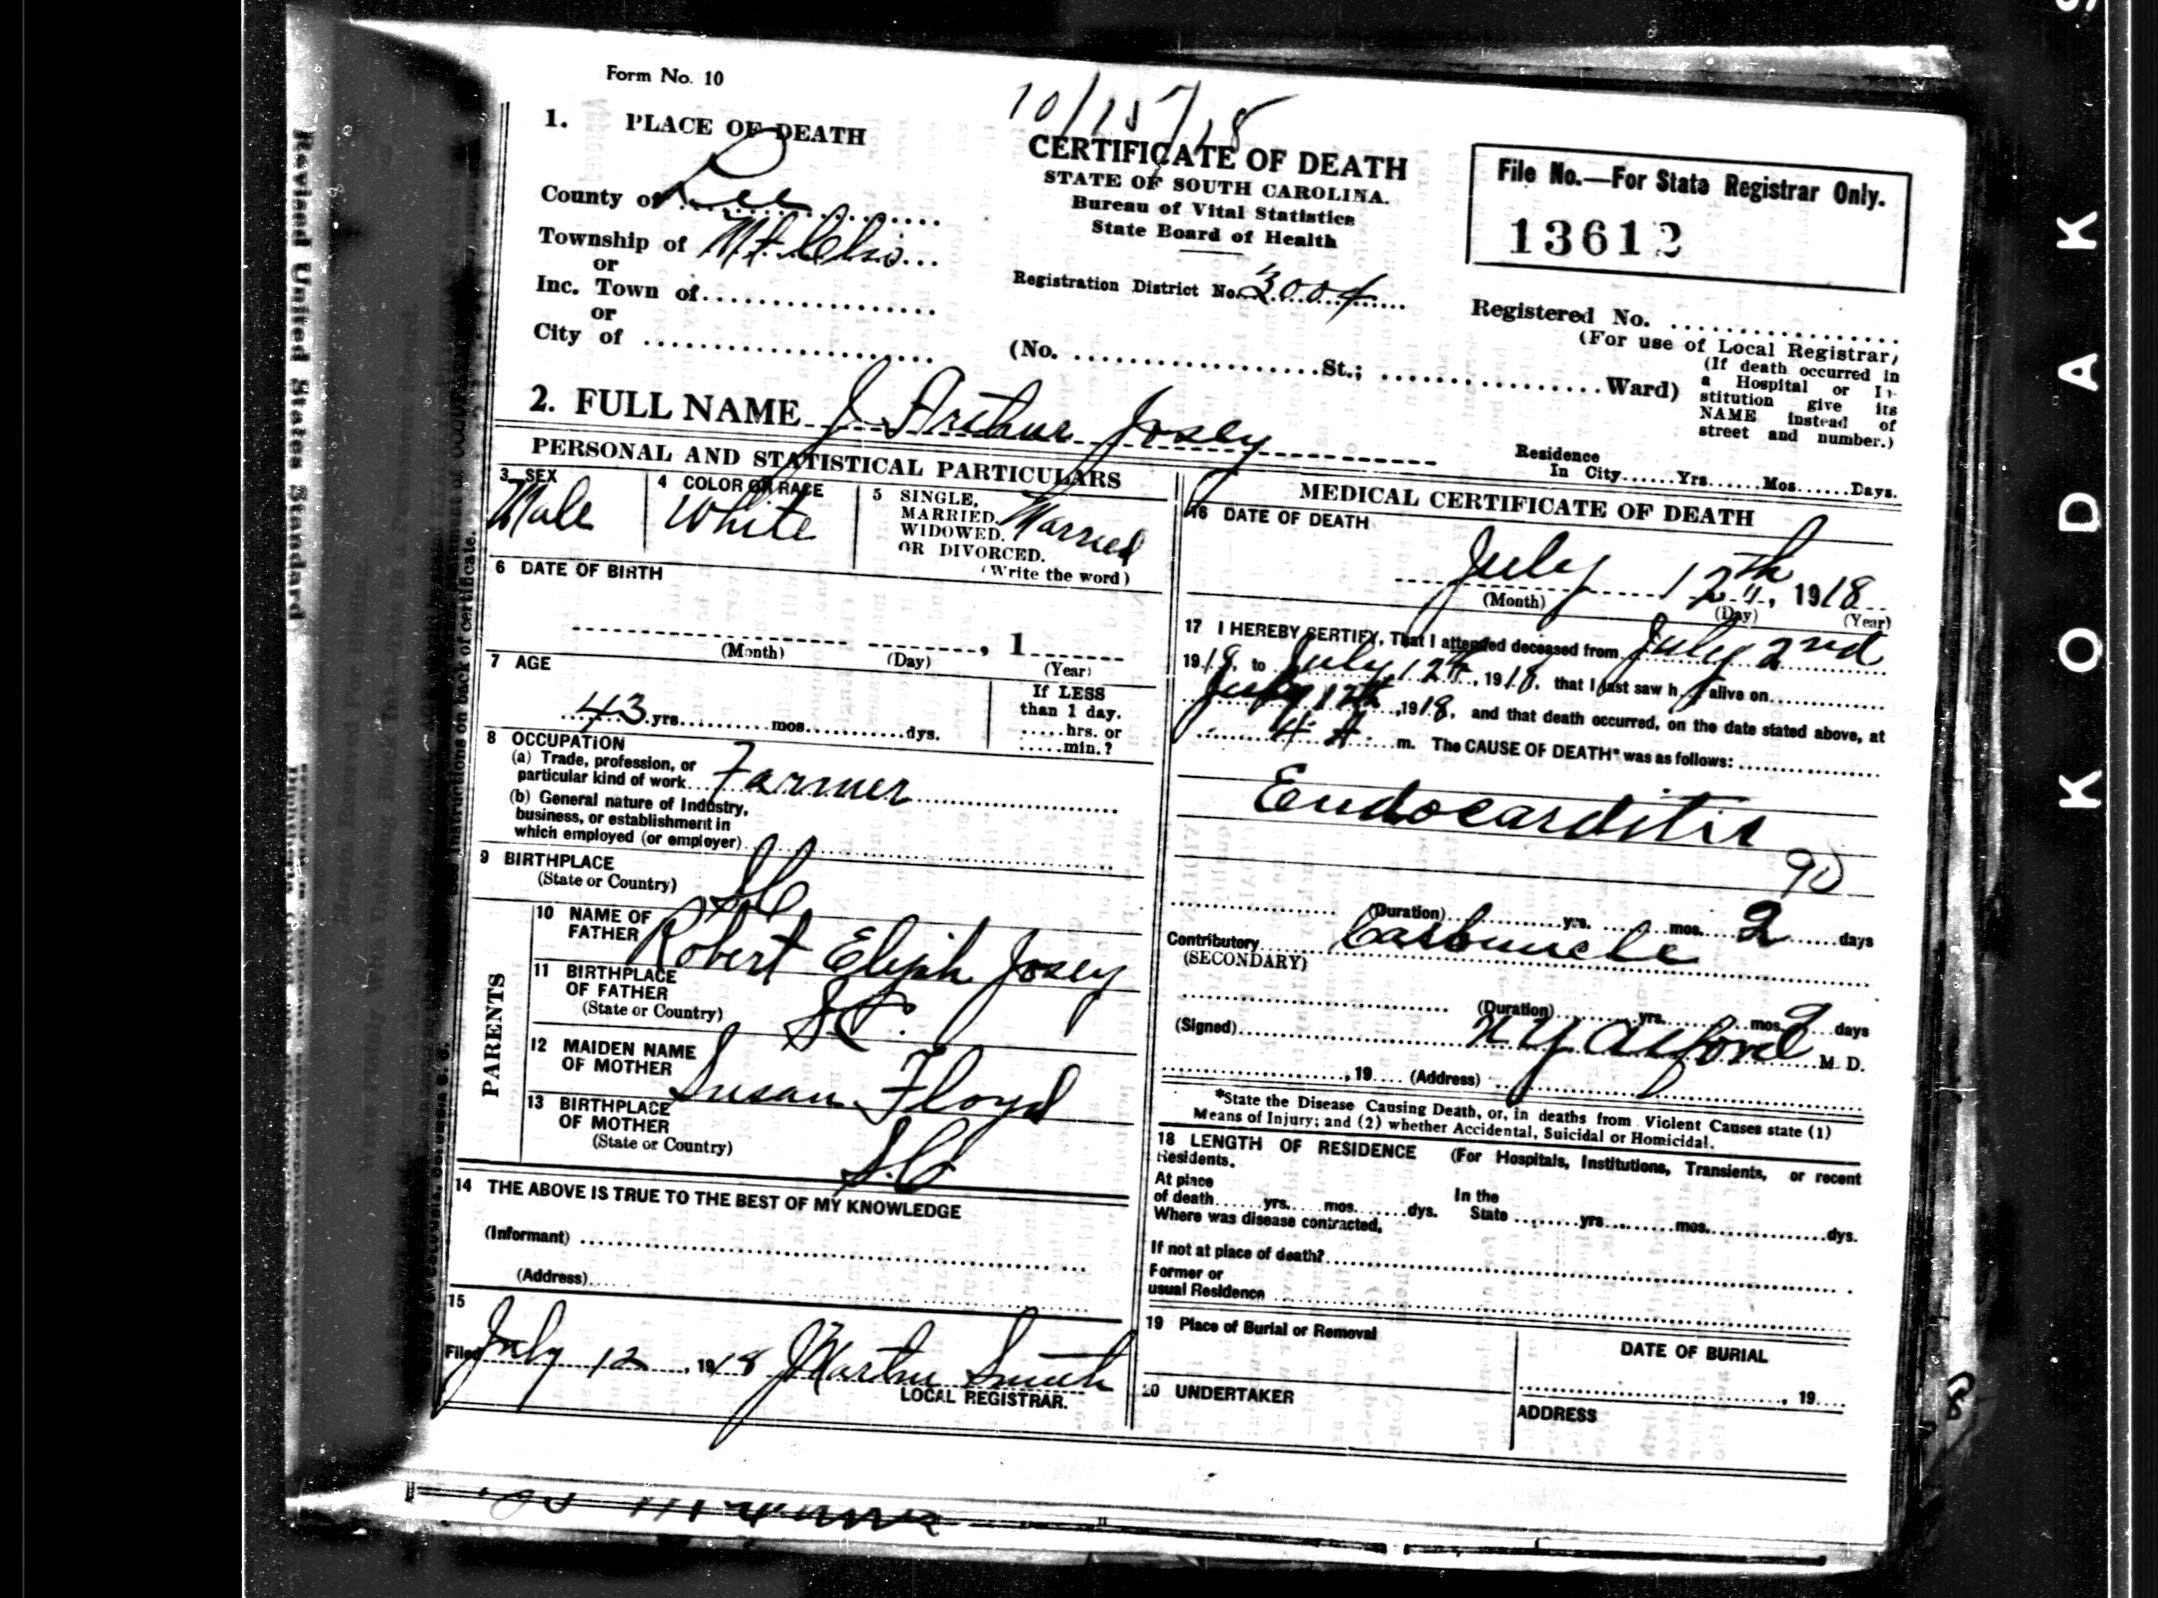 Form No. 10
10/15/18
1. PLACE OF DEATH
CERTIFICATE OF DEATH
STATE OF SOUTH CAROLINA.
Bureau of Vital Statistics
State Board of Health
File No.—For State Registrar Only.
13612
County of Lee
Township of Mt. Clio
or
Inc. Town of
or
City of
Registration District No. 3004
Registered No.
(For use of Local Registrar)
(No. St.; Ward)
(If death occurred in
a Hospital or In-
stitution give its
NAME instead of
street and number.)
2. FULL NAME J Arthur Josey
Residence
In City Yrs. Mos. Days.
PERSONAL AND STATISTICAL PARTICULARS
3 SEX
Male
4 COLOR OR RACE
White
5 SINGLE,
MARRIED,
WIDOWED.
OR DIVORCED.
Married
(Write the word)
6 DATE OF BIRTH
, 1
(Month) (Day) (Year)
7 AGE
43 yrs. mos. dys.
If LESS
than 1 day.
hrs. or
min.?
8 OCCUPATION
(a) Trade, profession, or
particular kind of work Farmer
(b) General nature of Industry,
business, or establishment in
which employed (or employer)
9 BIRTHPLACE
(State or Country) SC
PARENTS
10 NAME OF
FATHER Robert Elijah Josey
11 BIRTHPLACE
OF FATHER
(State or Country) S.C.
12 MAIDEN NAME
OF MOTHER Susan Floyd
13 BIRTHPLACE
OF MOTHER
(State or Country) S.C
14 THE ABOVE IS TRUE TO THE BEST OF MY KNOWLEDGE
(Informant)
(Address)
15
Filed July 12, 1918 J Martin Smith
LOCAL REGISTRAR.
MEDICAL CERTIFICATE OF DEATH
16 DATE OF DEATH
July 12th, 1918
(Month) (Day) (Year)
17 I HEREBY CERTIFY, That I attended deceased from July 2nd
1918, to July 12th, 1918, that I last saw h alive on
July 12th, 1918, and that death occurred, on the date stated above, at
4 A m. The CAUSE OF DEATH* was as follows:
Endocarditis
90
(Duration) yrs. mos. 2 days
Contributory Carbuncle
(SECONDARY)
(Duration) yrs. mos. 9 days
(Signed) M. D.
, 19 (Address)
*State the Disease Causing Death, or, in deaths from Violent Causes state (1)
Means of Injury; and (2) whether Accidental, Suicidal or Homicidal.
18 LENGTH OF RESIDENCE (For Hospitals, Institutions, Transients, or recent
Residents.
At place
of death yrs. mos. dys.
In the
State yrs. mos. dys.
Where was disease contracted,
If not at place of death?
Former or
usual Residence
19 Place of Burial or Removal
DATE OF BURIAL
, 19
20 UNDERTAKER
ADDRESS
Revised United States Standard
KODAK S
8